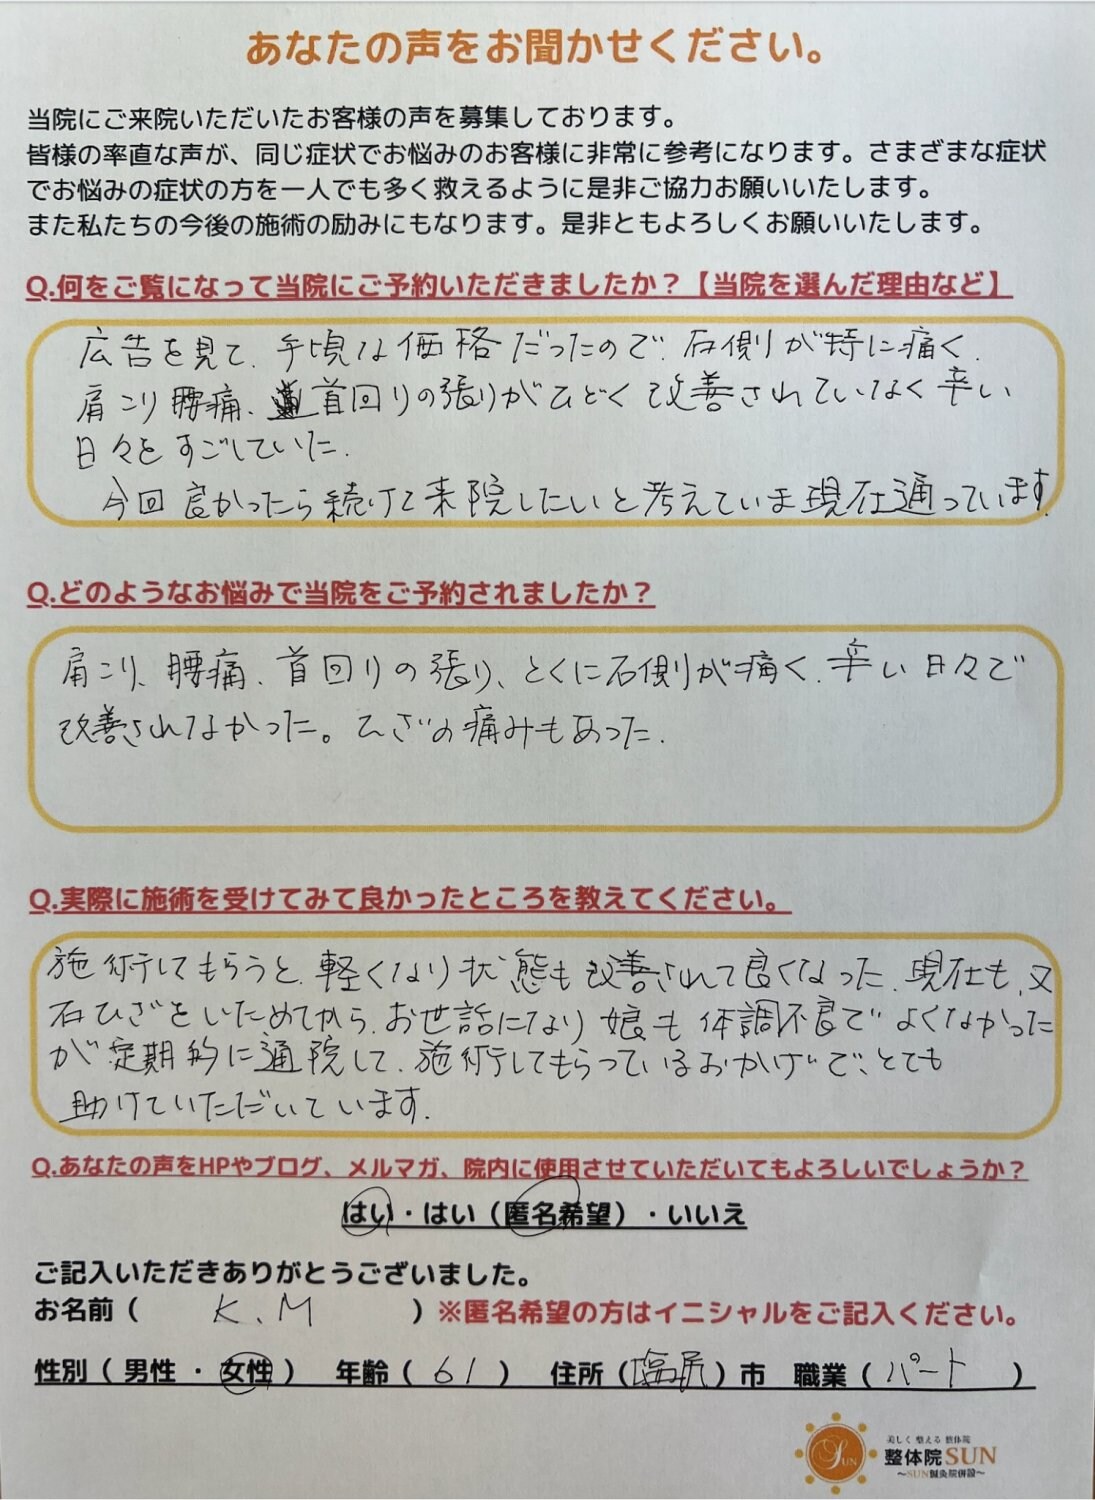 あなたの声をお聞かせください。
当院にご来院いただいたお客様の声を募集しております。
皆様の率直な声が、同じ症状でお悩みのお客様に非常に参考になります。さまざまな症状
でお悩みの症状の方を一人でも多く救えるように是非ご協力お願いいたします。
また私たちの今後の施術の励みにもなります。是非ともよろしくお願いいたします。
Q.何をご覧になって当院にご予約いただきましたか？【当院を選んだ理由など】
広告を見て、手頃な価格だったので、右側が特に痛く、
肩こり腰痛、首回りの張りがひどく改善されていなく辛い
日々をすごしていた。
今回良かったら続けて来院したいと考えていま現在通っています。
Q.どのようなお悩みで当院をご予約されましたか？
肩こり、腰痛、首回りの張り、とくに右側が痛く、辛い日々で
改善されなかった。ひざの痛みもあった。
Q.実際に施術を受けてみて良かったところを教えてください。
施術してもらうと、軽くなり状態も改善されて良くなった、現在も、又
右ひざをいためてから、お世話になり娘も体調不良でよくなかった
が定期的に通院して、施術してもらっているおかげで、とても
助けていただいています。
Q.あなたの声をHPやブログ、メルマガ、院内に使用させていただいてもよろしいでしょうか？
はい・はい（匿名希望）・いいえ
ご記入いただきありがとうございました。
お名前（ K.M ）※匿名希望の方はイニシャルをご記入ください。
性別（ 男性 ・ 女性 ） 年齢（ 61 ） 住所（塩尻）市 職業（ パート ）
美しく整える 整体院
SUN 整体院SUN
～SUN鍼灸院併設～